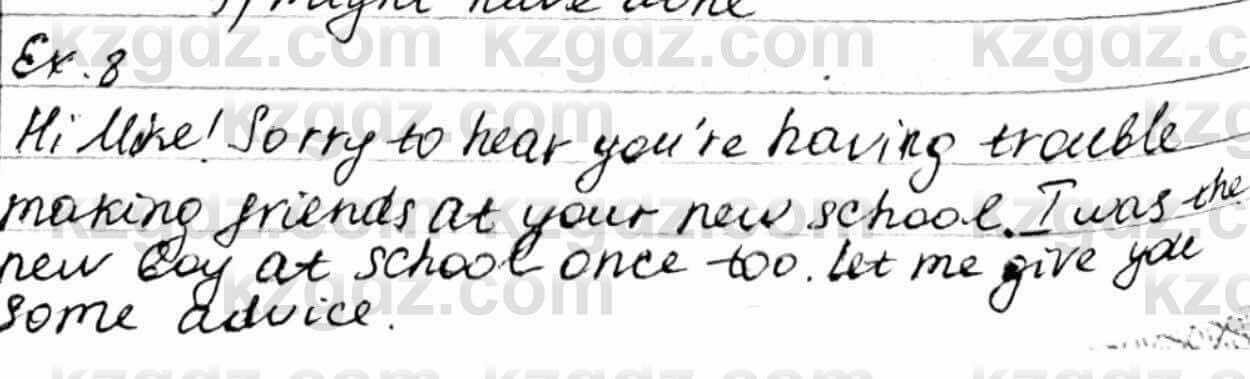 might have done
Ex. 8
Hi Mike! Sorry to hear you're having trouble
making friends at your new school. I was the
new boy at school once too. let me give you
some advice.